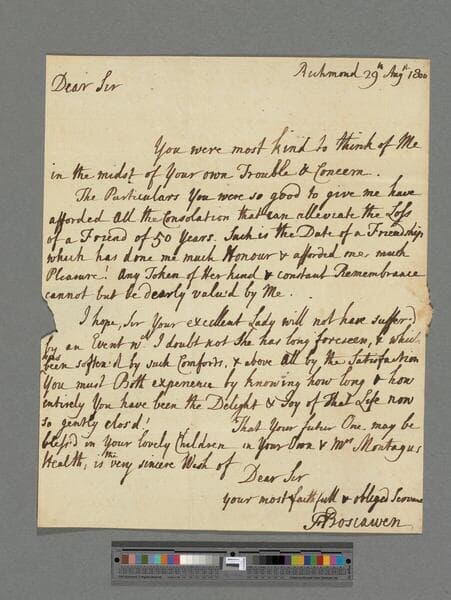 Richmond 29th Augst 1800
Dear Sir
You were most kind to think of Me
in the midst of Your own Trouble & Concern.
The Particulars You were so good to give me have
afforded All the Consolation that can alleviate the Loss
of a Friend of 50 Years. Such is the Date of a Friendship
which has done me much Honour & afforded one, much
Pleasure! Any Token of Her kind & constant Remembrance
cannot but be dearly valu'd by Me.
I hope, Sir Your excellent Lady will not have suffer'd
by an Event wch I doubt not She has long foreseen, & which
has
been soften'd by such Comforts, & above All by the Satisfaction
You must Both experience by knowing how long & how
entirely You have been the Delight & Joy of That Life now
so gently clos'd! That Your future One, may be
bless'd in Your lovely Children in Your Own & Mrs Montagus
Health, is the very sincere Wish of
Dear Sir
Your most faithfull & obliged Servant
Boscawen